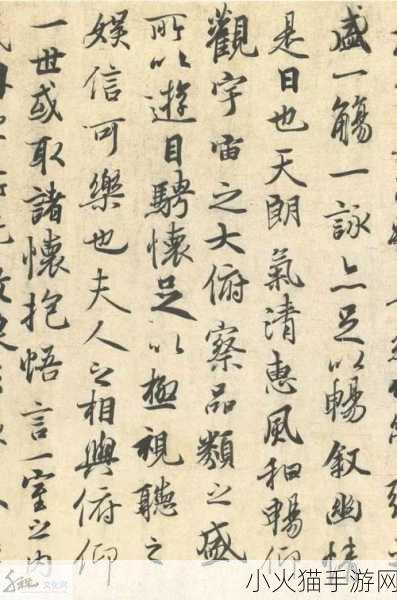 盛一觴一詠亦足以暢敘幽情
是日也天朗氣清惠風和暢仰
觀宇宙之大俯察品類之盛
所以遊目騁懷足以極視聽之
娛信可樂也夫人之相與俯仰
一世或取諸懷抱悟言一室之內
文化网
小火猫手游网